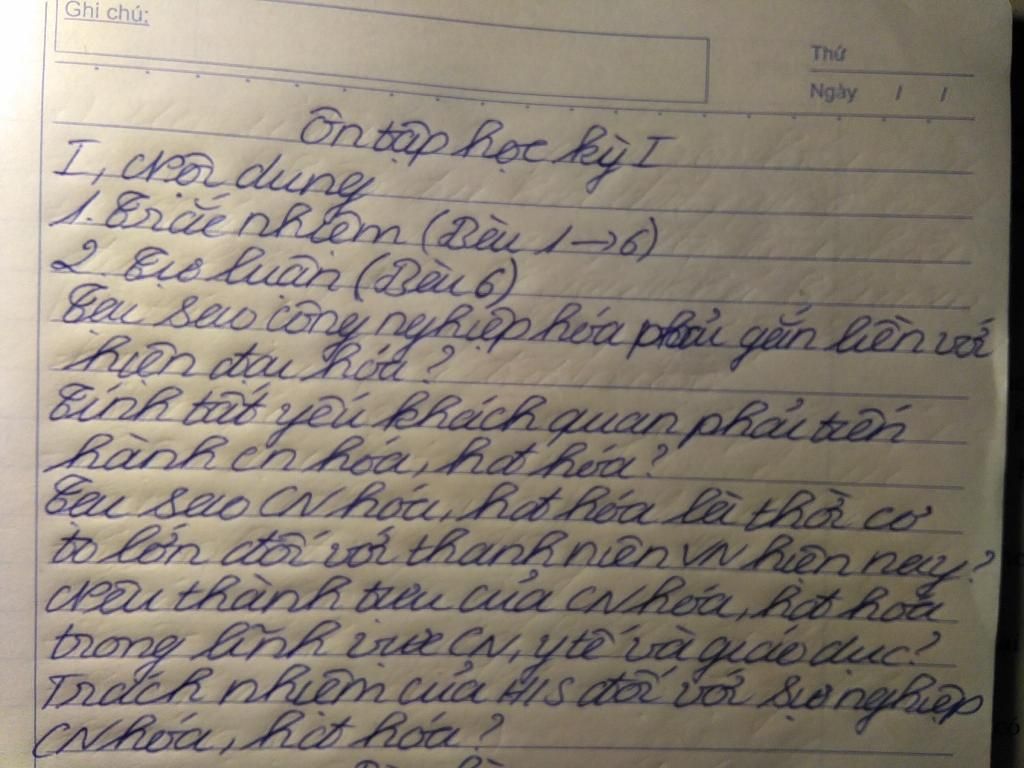 Ghi chú:
Thứ
Ngày / /
Ôn tập học kỳ I
I, Nội dung
1. Trắc nhiệm (Bài 1 → 6)
2. Tự luận (Bài 6)
Tại sao công nghiệp hóa phải gắn liền với
hiện đại hóa?
Tính tất yếu khách quan phải tiến
hành cn hóa, hđ hóa?
Tại sao CN hóa, hđ hóa là thời cơ
to lớn đối với thanh niên VN hiện nay?
Nêu thành tựu của CN hóa, hđ hóa
trong lĩnh vực CN, y tế và giáo dục?
Trách nhiệm của HS đối với sự nghiệp
CN hóa, hđ hóa?